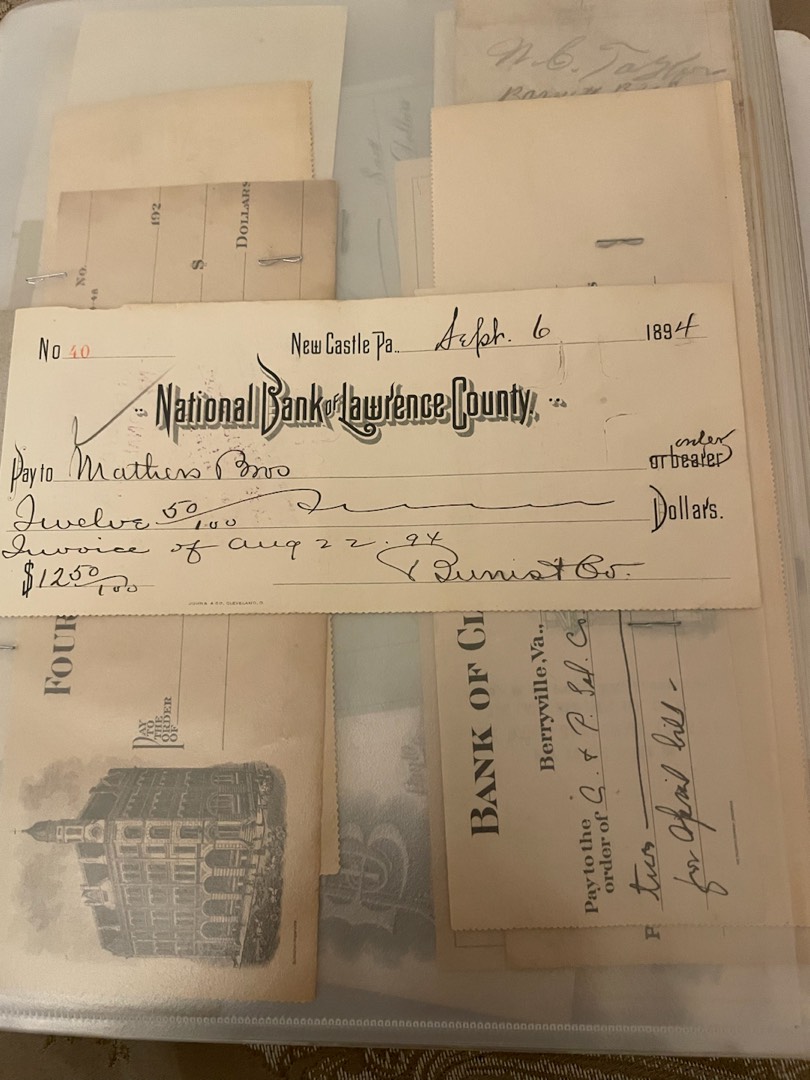 W. C. Taylor
No.
192
$
DOLLARS
No 40
New Castle Pa. Sept. 6 1894
National Bank of Lawrence County.
Pay to Mathers Bros order
or bearer
Twelve 50/100 Dollars.
Invoice of Aug 22. 94
$12 50/100
FOUR
PAY TO THE ORDER OF
BANK OF CL
Berryville, Va.,
Pay to the order of C. & P. Tel. Co.
two
for April bill -